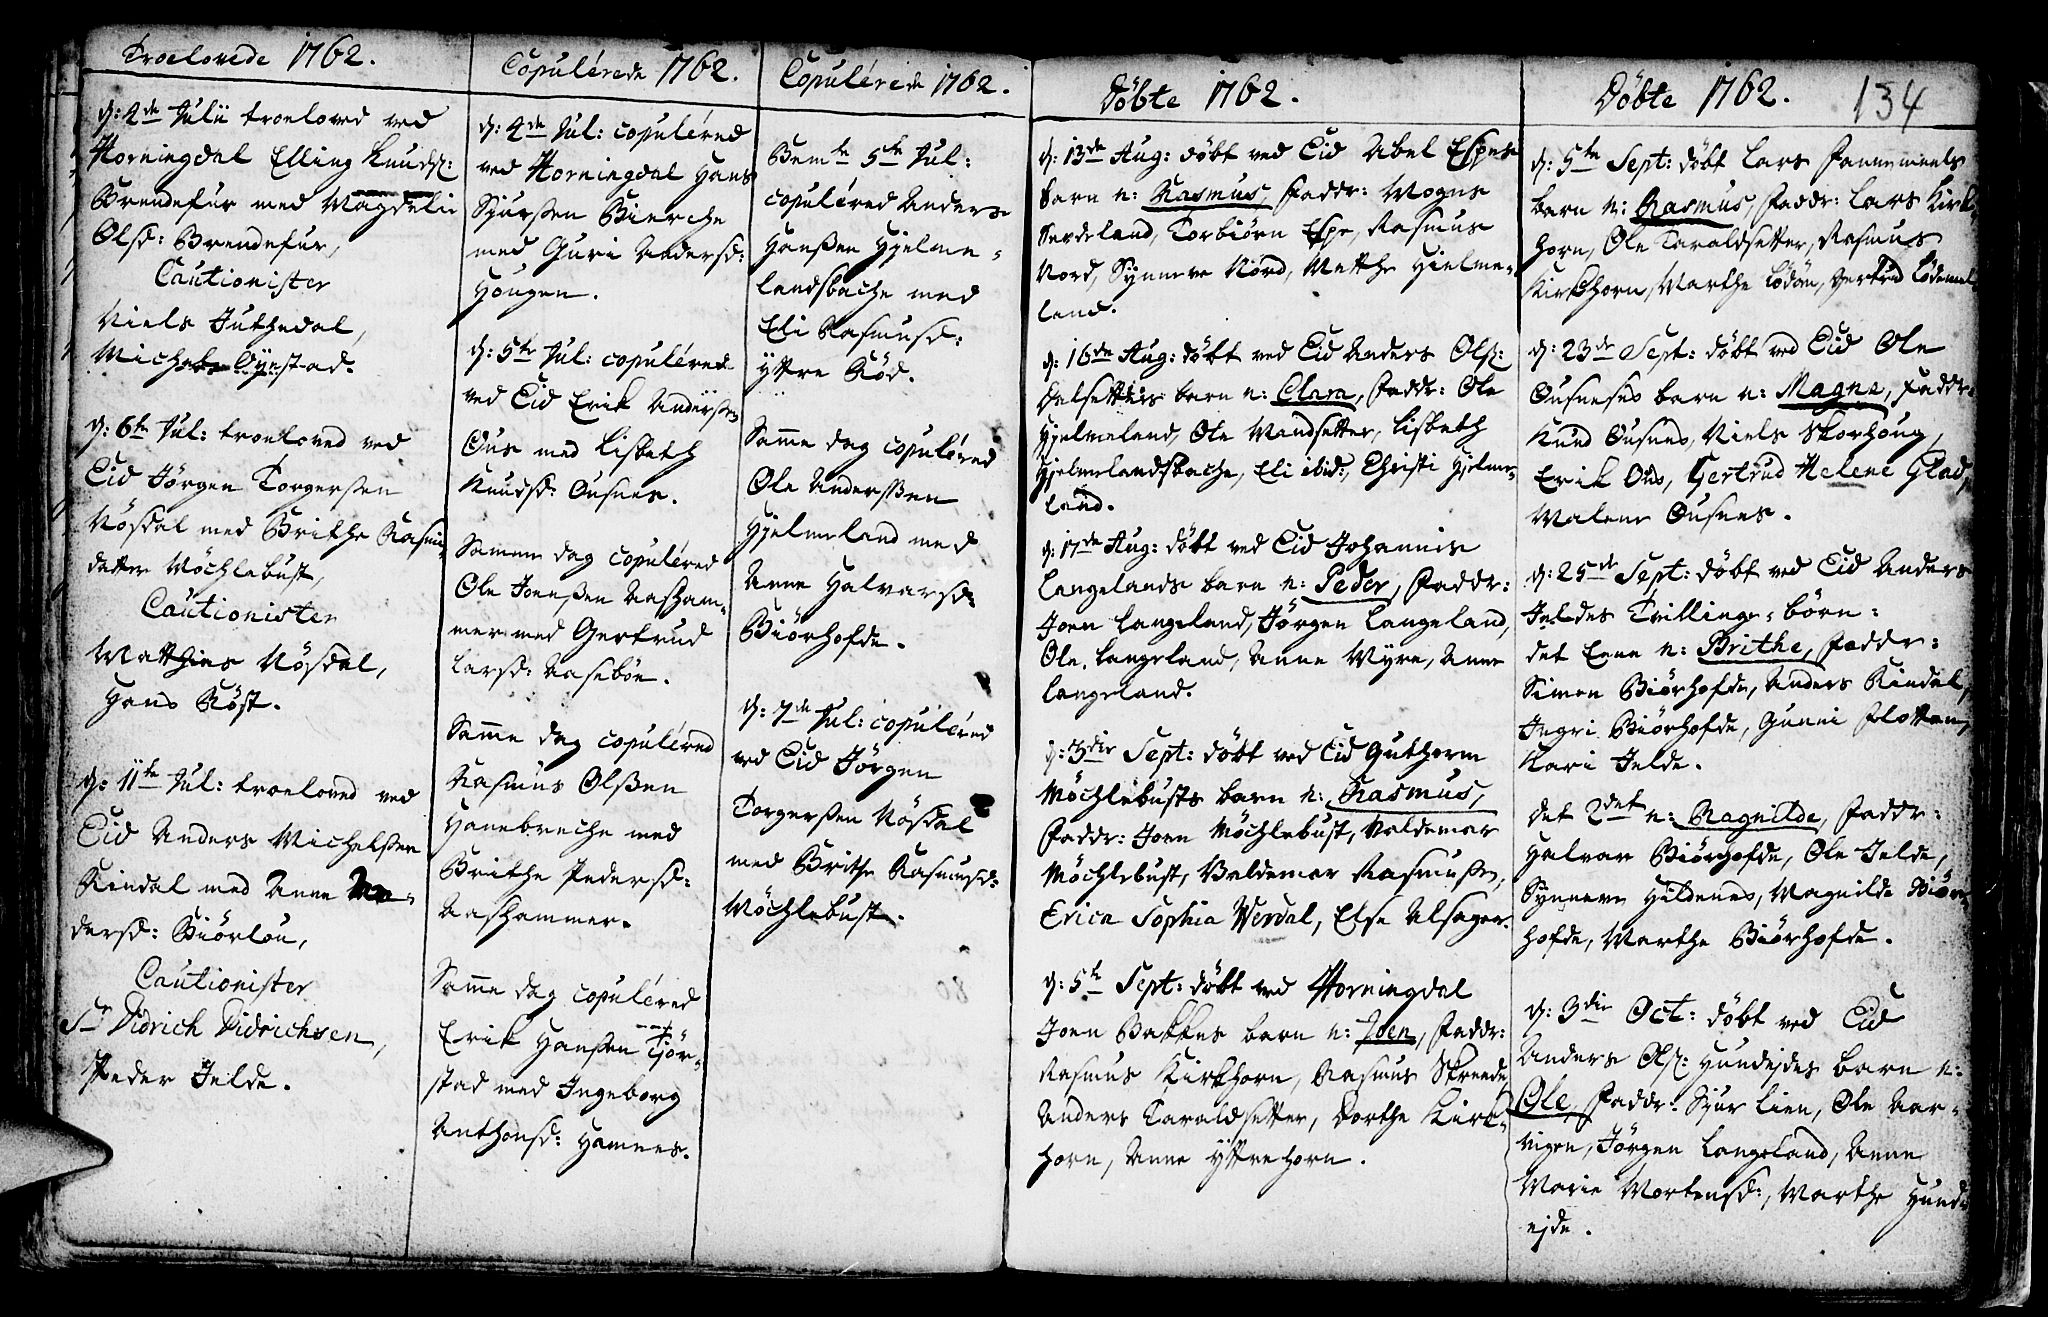 Troelovede 1762.
d: 4de Julii troeloved ved
Horningdal Elling Knuds:
Brendefur med Magdeli
Olsd: Brendefur,
Cautionister
Niels Juthedal,
Michel Øyestad.
d: 6te Jul: troeloved ved
Eid Jørgen Torgerssen
Nøsdal med Brithe Rasm:
datter Møchlebust,
Cautionister
Matthias Nøsdal,
Hans Røst.
d: 11te Jul: troeloved ved
Eid Anders Michelssen
Rindal med Anne An-
dersd: Biørlou,
Cautionister
Sr Didrich Didrichsen,
Peder Jelde.
Copulérede 1762.
d: 4de Jul: copuléred
ved Horningdal Hans
Spurssen Bierche
med Guri Andersd:
Hougen.
d: 5te Jul: copulérede
ved Eid Erik Anderssen
Ous med Lisbeth
Knudsd: Ousnes.
Samme dag copuléred
Ole Joenssen Aasham-
mer med Gertrud
Larsd: Aasebøe.
Samme dag copuléred
Rasmus Olssen
Hanebreche med
Brithe Pedersd:
Aashammer.
Samme dag copuléred
Erik Hanssen Tiør-
stad med Ingeborg
Anthonsd: Hamnes.
Copulérede 1762.
Bemte 5te Jul:
copuléred Anders
Hanssen Hjelme-
landsbache med
Eli Rasmusd:
Yttre Rød.
Samme dag copuléred
Ole Anderssen
Hjelmeland med
Anne Halvarsd:
Biørhofde.
d: 7de Jul: copuléred
ved Eid Jørgen
Torgerssen Nøsdal
med Brithe Rasmusd:
Møchlebust.
Døbte 1762.
d: 13de Aug: døbt ved Eid Abel Espes
barn n: Rasmus, Faddr: Mogns
Sördeland, Torbiørn Espe, Rasmus
Nord, Synneve Nord, Matthe Hielme-
land.
d: 16de Aug: døbt ved Eid Anders Ols:
Dalsetters barn n: Clara, Faddr: Ole
Hjelmeland, Ole Mandsetter, Lisbeth
Hjelmelandsbache, Eli ibid:, Christi Hjelme-
land.
d: 17de Aug: døbt ved Eid Johannes
Langelands barn n: Peder, Faddr:
Joen Langeland, Jørgen Langeland,
Ole Langeland, Anne Myre, Anne
Langeland.
d: 3die Sept: døbt ved Eid Guthorm
Møchlebusts barn n: Rasmus,
Faddr: Joen Møchlebust, Valdemar
Møchlebust, Valdemar Rasmuss:,
Erica Sophia Werdal, Else Alsager.
d: 5te Sept: døbt ved Horningdal
Joen Bakkes barn n: Joen, Faddr:
Rasmus Kirkhorn, Rasmus Skreede,
Anders Taraldsetter, Dorthe Kirk-
horn, Anne Yttrehorn.
Døbte 1762. 134
d: 5te Sept: døbt Lars Fannemeels
barn n: Rasmus, Faddr: Lars Kirk-
horn, Ole Taraldsetter, Rasmus
Kirkhorn, Marthe Lødøn, Gertrud Lødemel
d: 23de Sept: døbt ved Eid Ole
Ousneses barn n: Magne, Faddr:
Knud Ousnes, Niels Skorhoug,
Erik Ous, Gertrud Helene Glad,
Malene Ousnes.
d: 25de Sept: døbt ved Eid Anders
Jeldes Tvillinge-børn:
det Eene n: Brithe, Faddr:
Simen Biørhofde, Anders Rindal,
Ingri Biørhofde, Gunni Flotten,
Kari Jelde.
det 2det n: Ragnilde, Faddr:
Halvar Biørhofde, Ole Jelde,
Synneve Hildenes, Magnilde Biør-
hofde, Marthe Biørhofde.
d: 3die Oct: døbt ved Eid
Anders Ols: Hundejdes barn n:
Ole, Faddr: Spur Lien, Ole Aar-
vigen, Jørgen Langeland, Anne
Marie Mortensd:, Marthe Hund-
ejde.